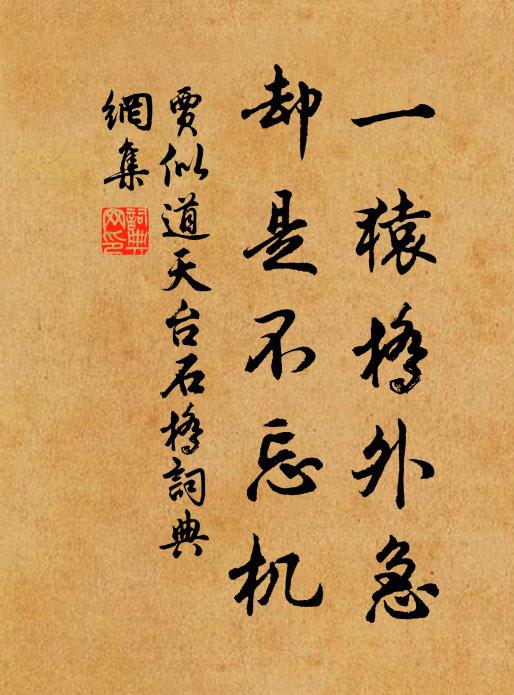 一猿橋外急
却是不忘机
賈似道天台石橋詞典
網集
詞典网印